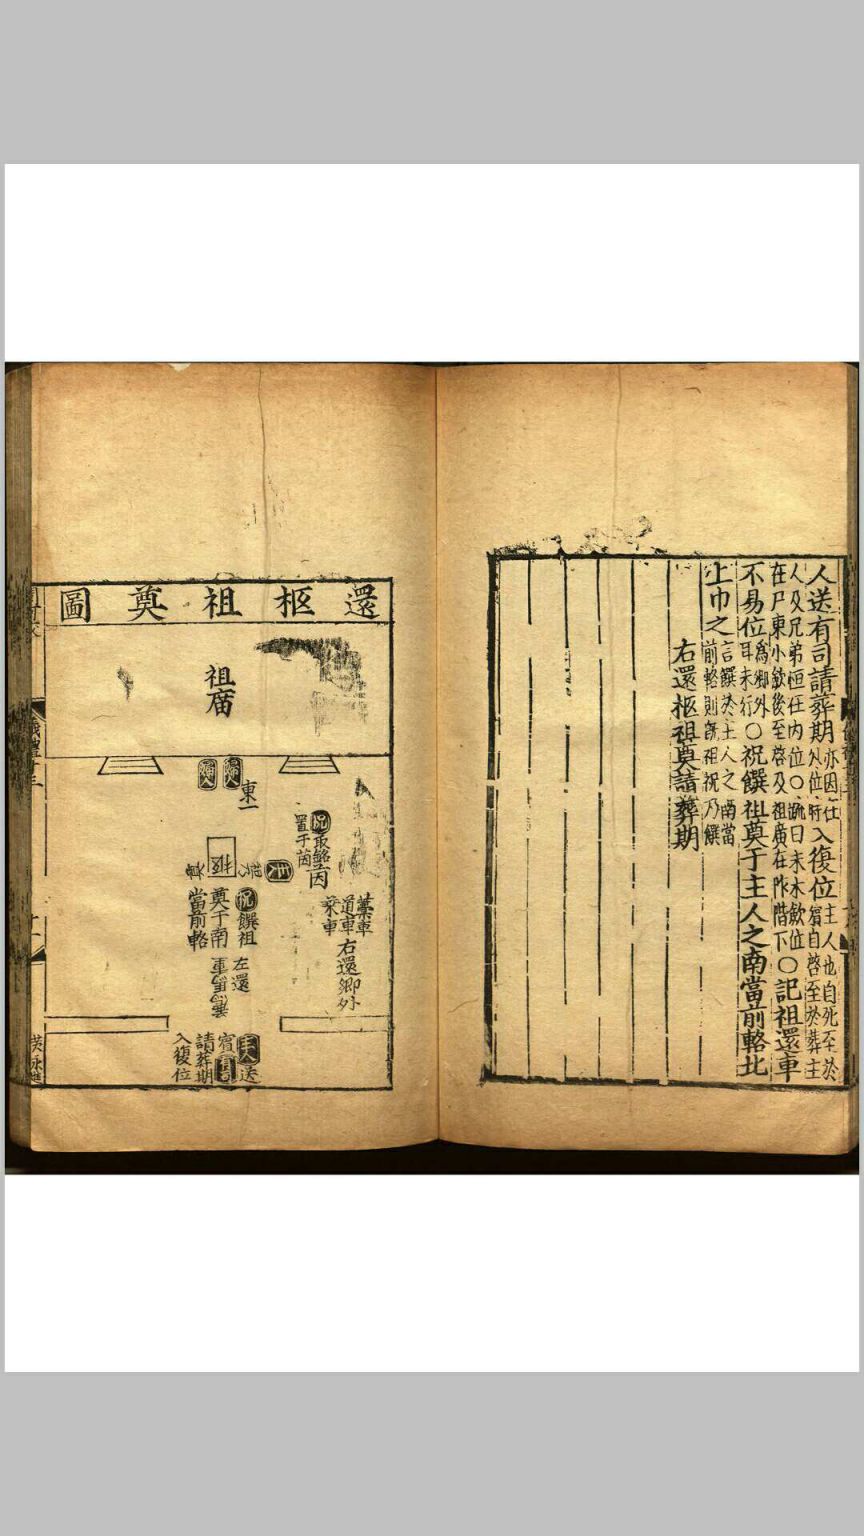 人送有司請葬期亦因在外位時入復位主人也自死至於賓自啓至於葬主
人及兄弟恒在內位○疏曰未小斂位在尸東小斂後至啓及祖廟在阼階下○記祖還車
不易位爲鄉外耳未行○祝饌祖奠于主人之南當前輅北
上巾之言饌於主人之南當前輅則旣祖祝乃饌
右還柩祖奠請葬期
還柩祖奠圖
祖廟
婦人
婦人
東一
祝取銘
置于茵
茵
柩
祝饌祖
奠于南
當前輅
左還
車
藁車
道車
乘車
右還鄉外
主人送
賓有司
請葬期
入復位